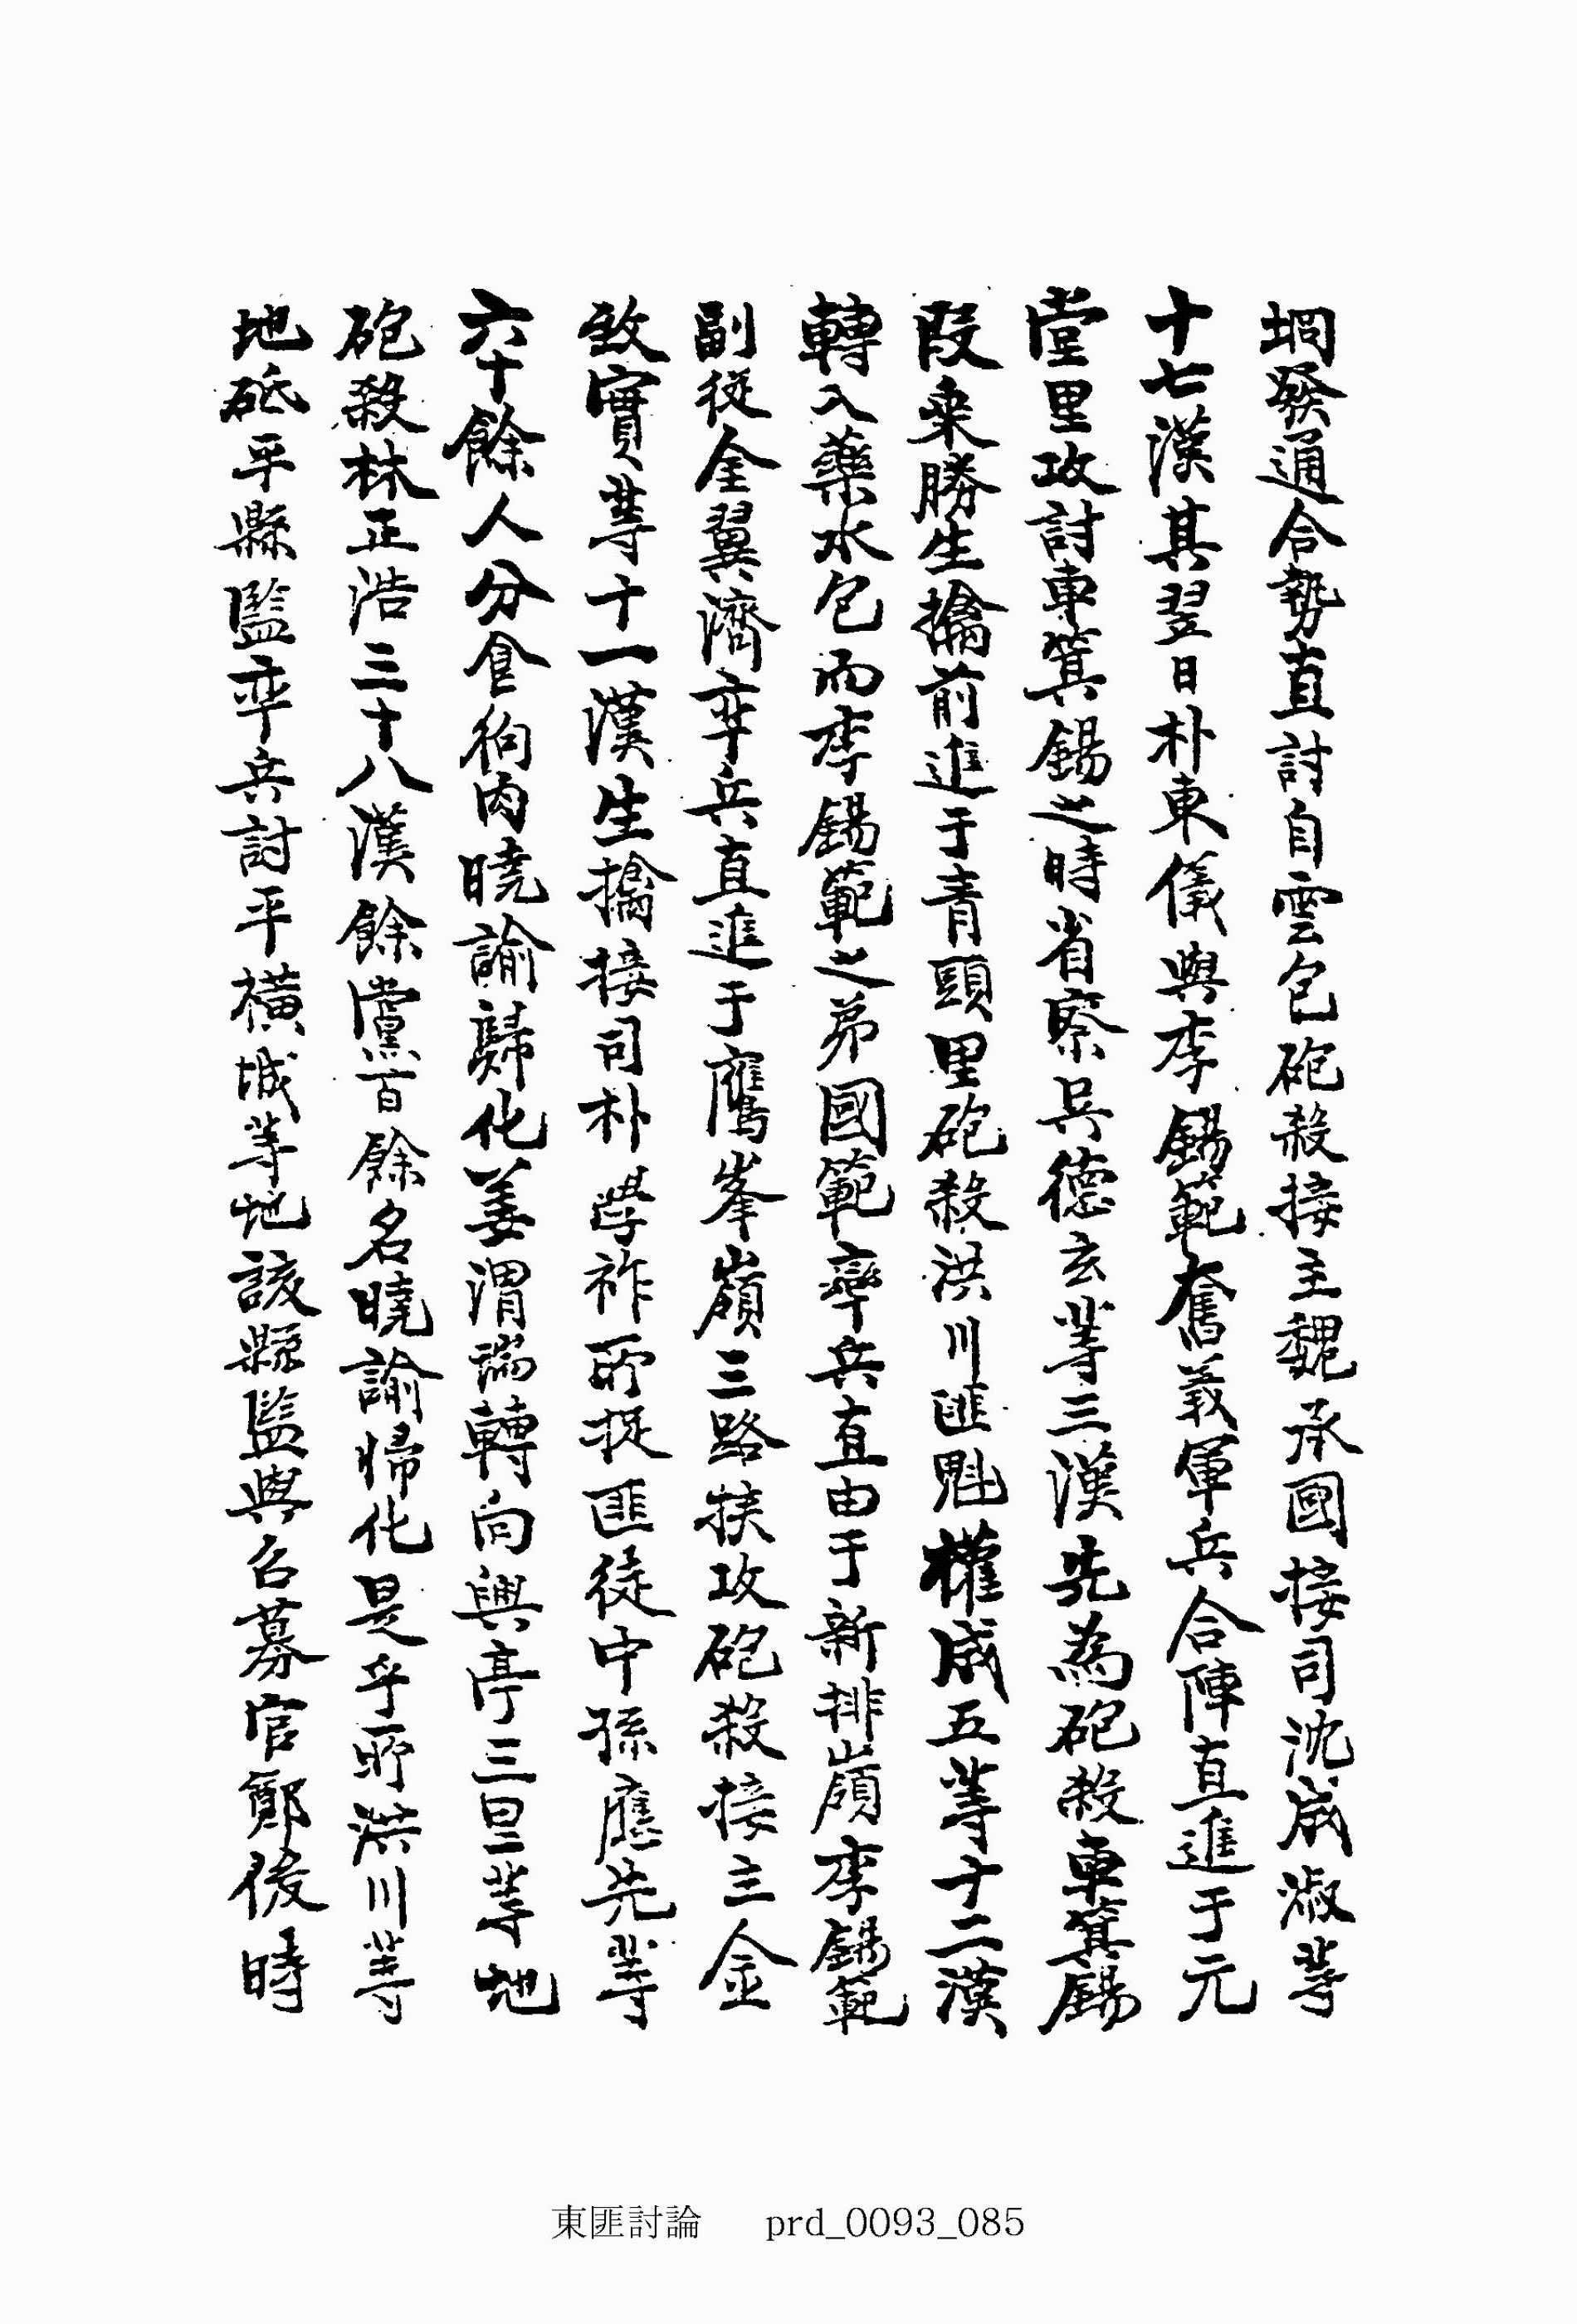 垌發通合勢直討自雲包砲殺接主魏承國接司沈成淑等
十七漢其翌日朴東儀與李錫範奮義軍兵合陣直進于元
堂里攻討車箕錫之時省察吳德玄等三漢先為砲殺車箕錫
段乘勝生擒前進于青頭里砲殺洪川匪魁權成五等十二漢
轉入藥水包而李錫範之弟國範率兵直由于新排嶺李錫範
副從金翼濟率兵直進于鷹峯嶺三路挾攻砲殺接主金
致實等十一漢生擒接司朴學祚所捉匪徒中孫應先等
六十餘人分食狗肉曉諭歸化姜渭瑞轉向興亭三里等地
砲殺林正浩三十八漢餘黨百餘名曉諭歸化是乎所洪川等
地砥平縣監率兵討平橫城等地該縣監與召募官鄭俊時
東匪討論 prd_0093_085